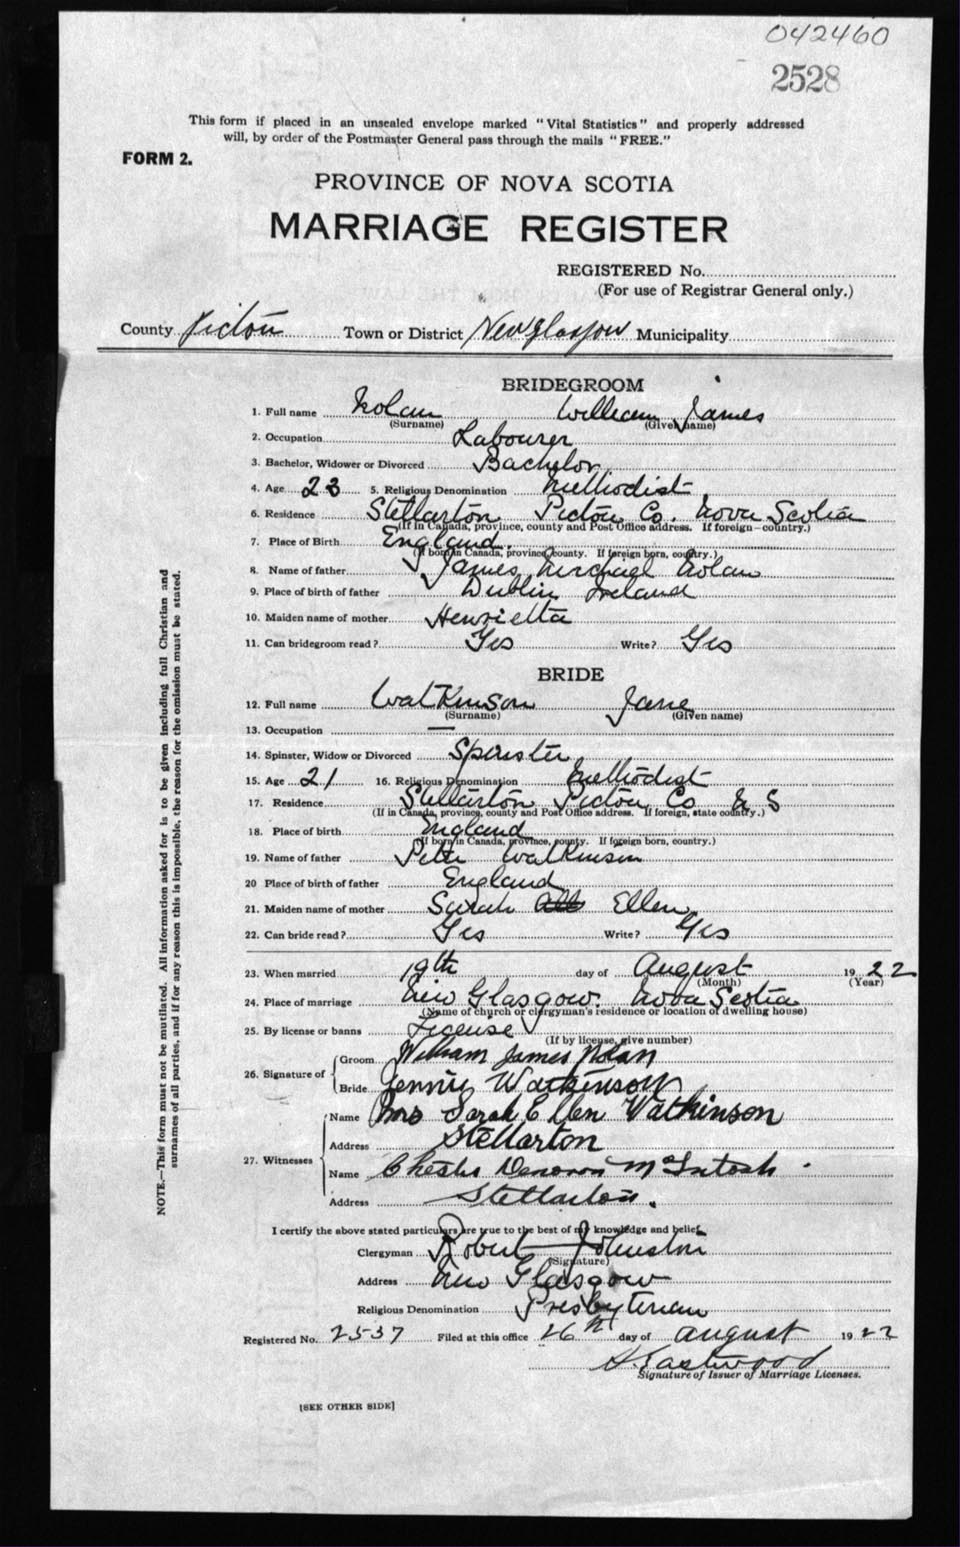 042460
2528
This form if placed in an unsealed envelope marked "Vital Statistics" and properly addressed
will, by order of the Postmaster General pass through the mails "FREE."
FORM 2.
PROVINCE OF NOVA SCOTIA
MARRIAGE REGISTER
REGISTERED No.
(For use of Registrar General only.)
County Pictou Town or District New Glasgow Municipality
BRIDEGROOM
1. Full name Nolan William James
(Surname) (Given name)
2. Occupation Labourer
3. Bachelor, Widower or Divorced Bachelor
4. Age 23 5. Religious Denomination Methodist
6. Residence Stellarton Pictou Co. Nova Scotia
(If in Canada, province, county and Post Office address. If foreign—country.)
7. Place of Birth England.
(If born in Canada, province, county. If foreign born, country.)
8. Name of father James Michael Nolan
9. Place of birth of father Dublin Ireland
10. Maiden name of mother Henrietta
11. Can bridegroom read? Yes Write? Yes
BRIDE
12. Full name Watkinson Jane
(Surname) (Given name)
13. Occupation —
14. Spinster, Widow or Divorced Spinster
15. Age 21 16. Religious Denomination Methodist
17. Residence Stellarton Pictou Co N S
(If in Canada, province, county and Post Office address. If foreign, state country.)
18. Place of birth England
(If born in Canada, province, county. If foreign born, country.)
19. Name of father Peter Watkinson
20 Place of birth of father England
21. Maiden name of mother Sarah Ellen
22. Can bride read? Yes Write? Yes
23. When married 19th day of August 1922
(Month) (Year)
24. Place of marriage New Glasgow. Nova Scotia
(Name of church or clergyman's residence or location of dwelling house)
25. By license or banns License
(If by license, give number)
26. Signature of Groom William James Nolan
Bride Jennie Watkinson
27. Witnesses Name Mrs Sarah Ellen Watkinson
Address Stellarton
Name Chester McIntosh.
Address Stellarton.
I certify the above stated particulars are true to the best of my knowledge and belief.
Clergyman Robert Johnston
(Signature)
Address New Glasgow
Religious Denomination Presbyterian
Registered No. 2537 Filed at this office 26th day of August 1922
H. Eastwood
Signature of Issuer of Marriage Licenses.
[SEE OTHER SIDE]
NOTE.—This form must not be mutilated. All information asked for is to be given including full Christian and
surnames of all parties, and if for any reason this is impossible, the reason for the omission must be stated.